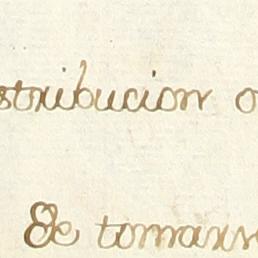 stribucion o
Se tomaxo